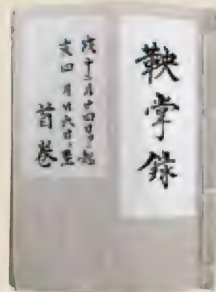 鞅掌錄
戌十二月廿四日ゟ起
亥四月廿六日ニ至
首巻